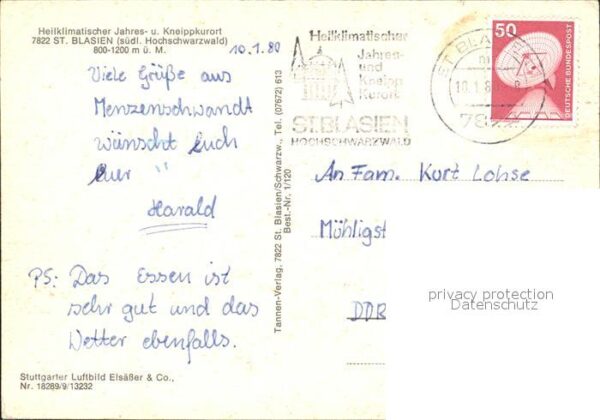 Heilklimatischer Jahres- u. Kneippkurort
7822 ST. BLASIEN (südl. Hochschwarzwald)
800-1200 m ü. M.
10.1.80
Viele Grüße aus
Menzenschwandt
wünscht Euch
Euer "
Harald
PS: Das Essen ist
sehr gut und das
Wetter ebenfalls.
Stuttgarter Luftbild Elsäßer & Co.,
Nr. 18289/9/13232
Tannen-Verlag, 7822 St. Blasien/Schwarzw., Tel. (07672) 613
Best.-Nr. 1/120
Heilklimatischer
Jahres-
und
Kneipp
Kurort
ST.BLASIEN
HOCHSCHWARZWALD
ST BLAS
10.1.8
78
50
DEUTSCHE BUNDESPOST
An Fam. Kurt Lohse
Möhligst
DDR
privacy protection
Datenschutz